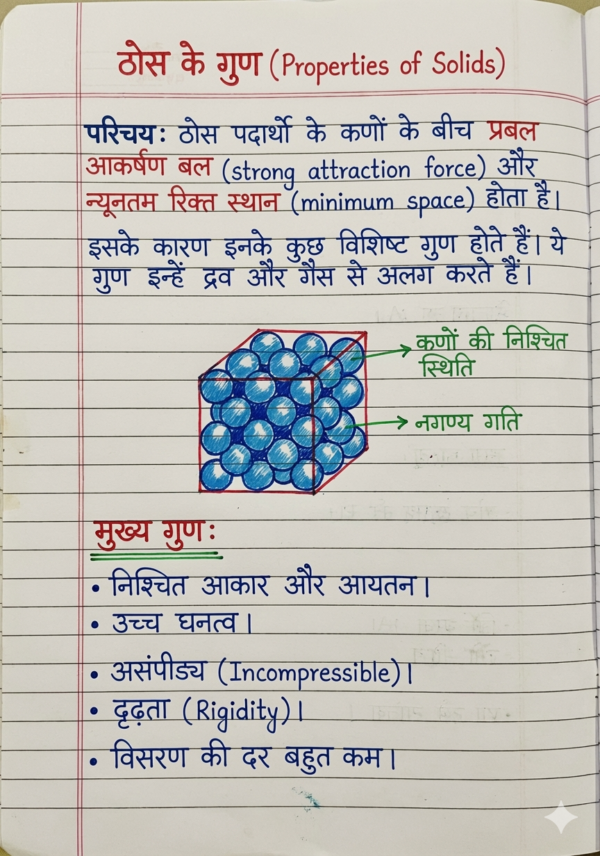 ठोस के गुण (Properties of Solids)
परिचय: ठोस पदार्थो के कणों के बीच प्रबल
आकर्षण बल (strong attraction force) और
न्यूनतम रिक्त स्थान (minimum space) होता है।
इसके कारण इनके कुछ विशिष्ट गुण होते हैं। ये
गुण इन्हें द्रव और गैस से अलग करते हैं।
कणों की निश्चित
स्थिति
नगण्य गति
मुख्य गुण:
• निश्चित आकार और आयतन।
• उच्च घनत्व।
• असंपीड्य (Incompressible)।
• दृढ़ता (Rigidity)।
• विसरण की दर बहुत कम।